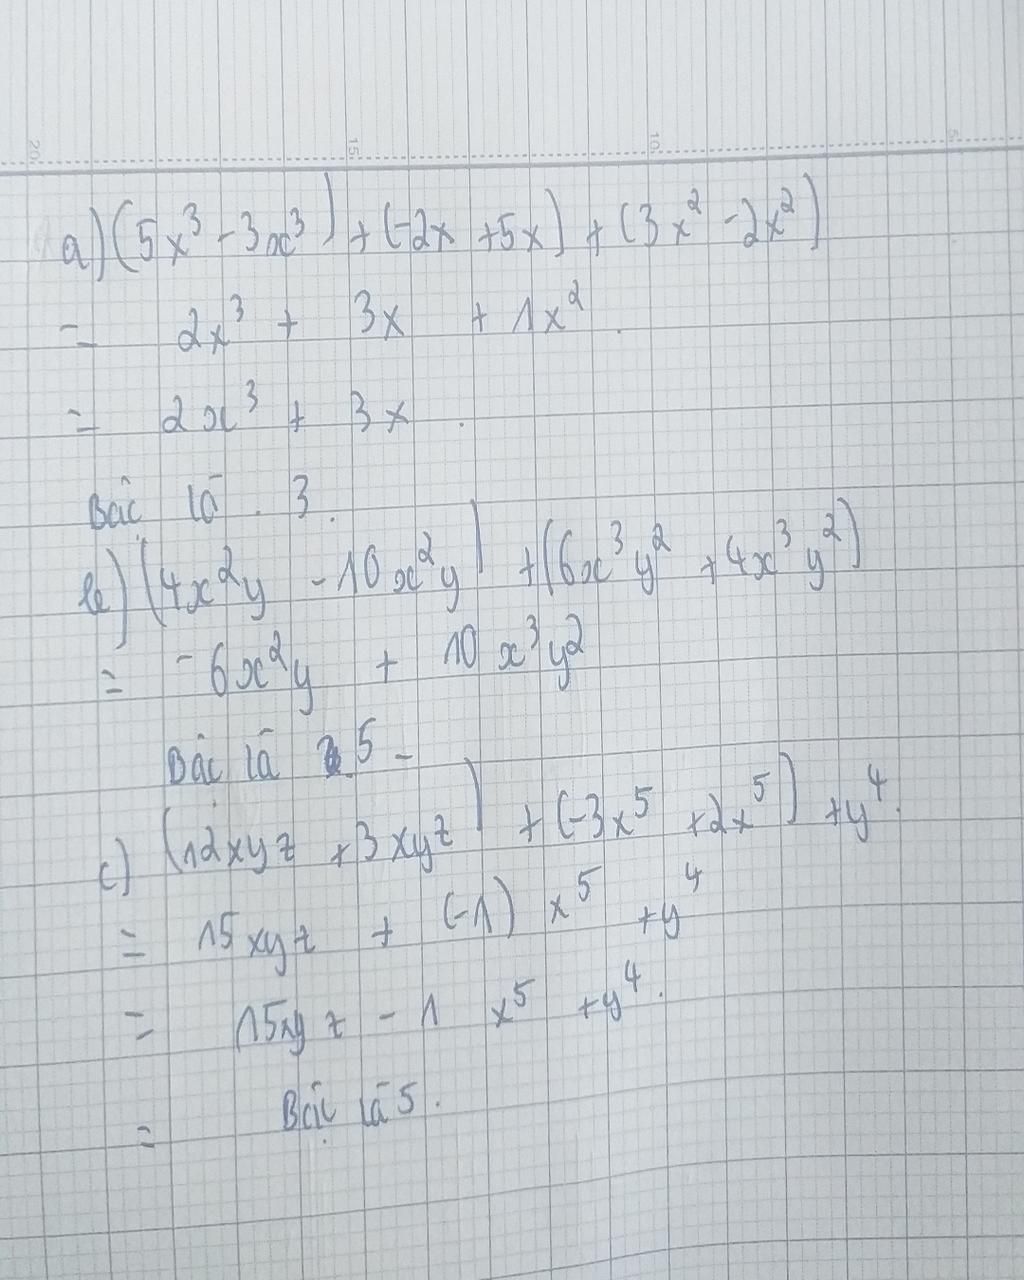 20 15 10 5
a) (5x³ - 3x³) + (-2x + 5x) + (3x² - 2x²)
= 2x³ + 3x + 1x².
= 2x³ + 3x.
Bậc là 3.
b) (4x²y - 10x²y) + (6x³y² + 4x³y²)
= -6x²y + 10x³y²
Bậc là 5 -
c) (12xyz + 3xyz) + (-3x⁵ + 2x⁵) + y⁴.
= 15xyz + (-1) x⁵ + y⁴
= 15xyz - 1 x⁵ + y⁴.
= Bậc là 5.